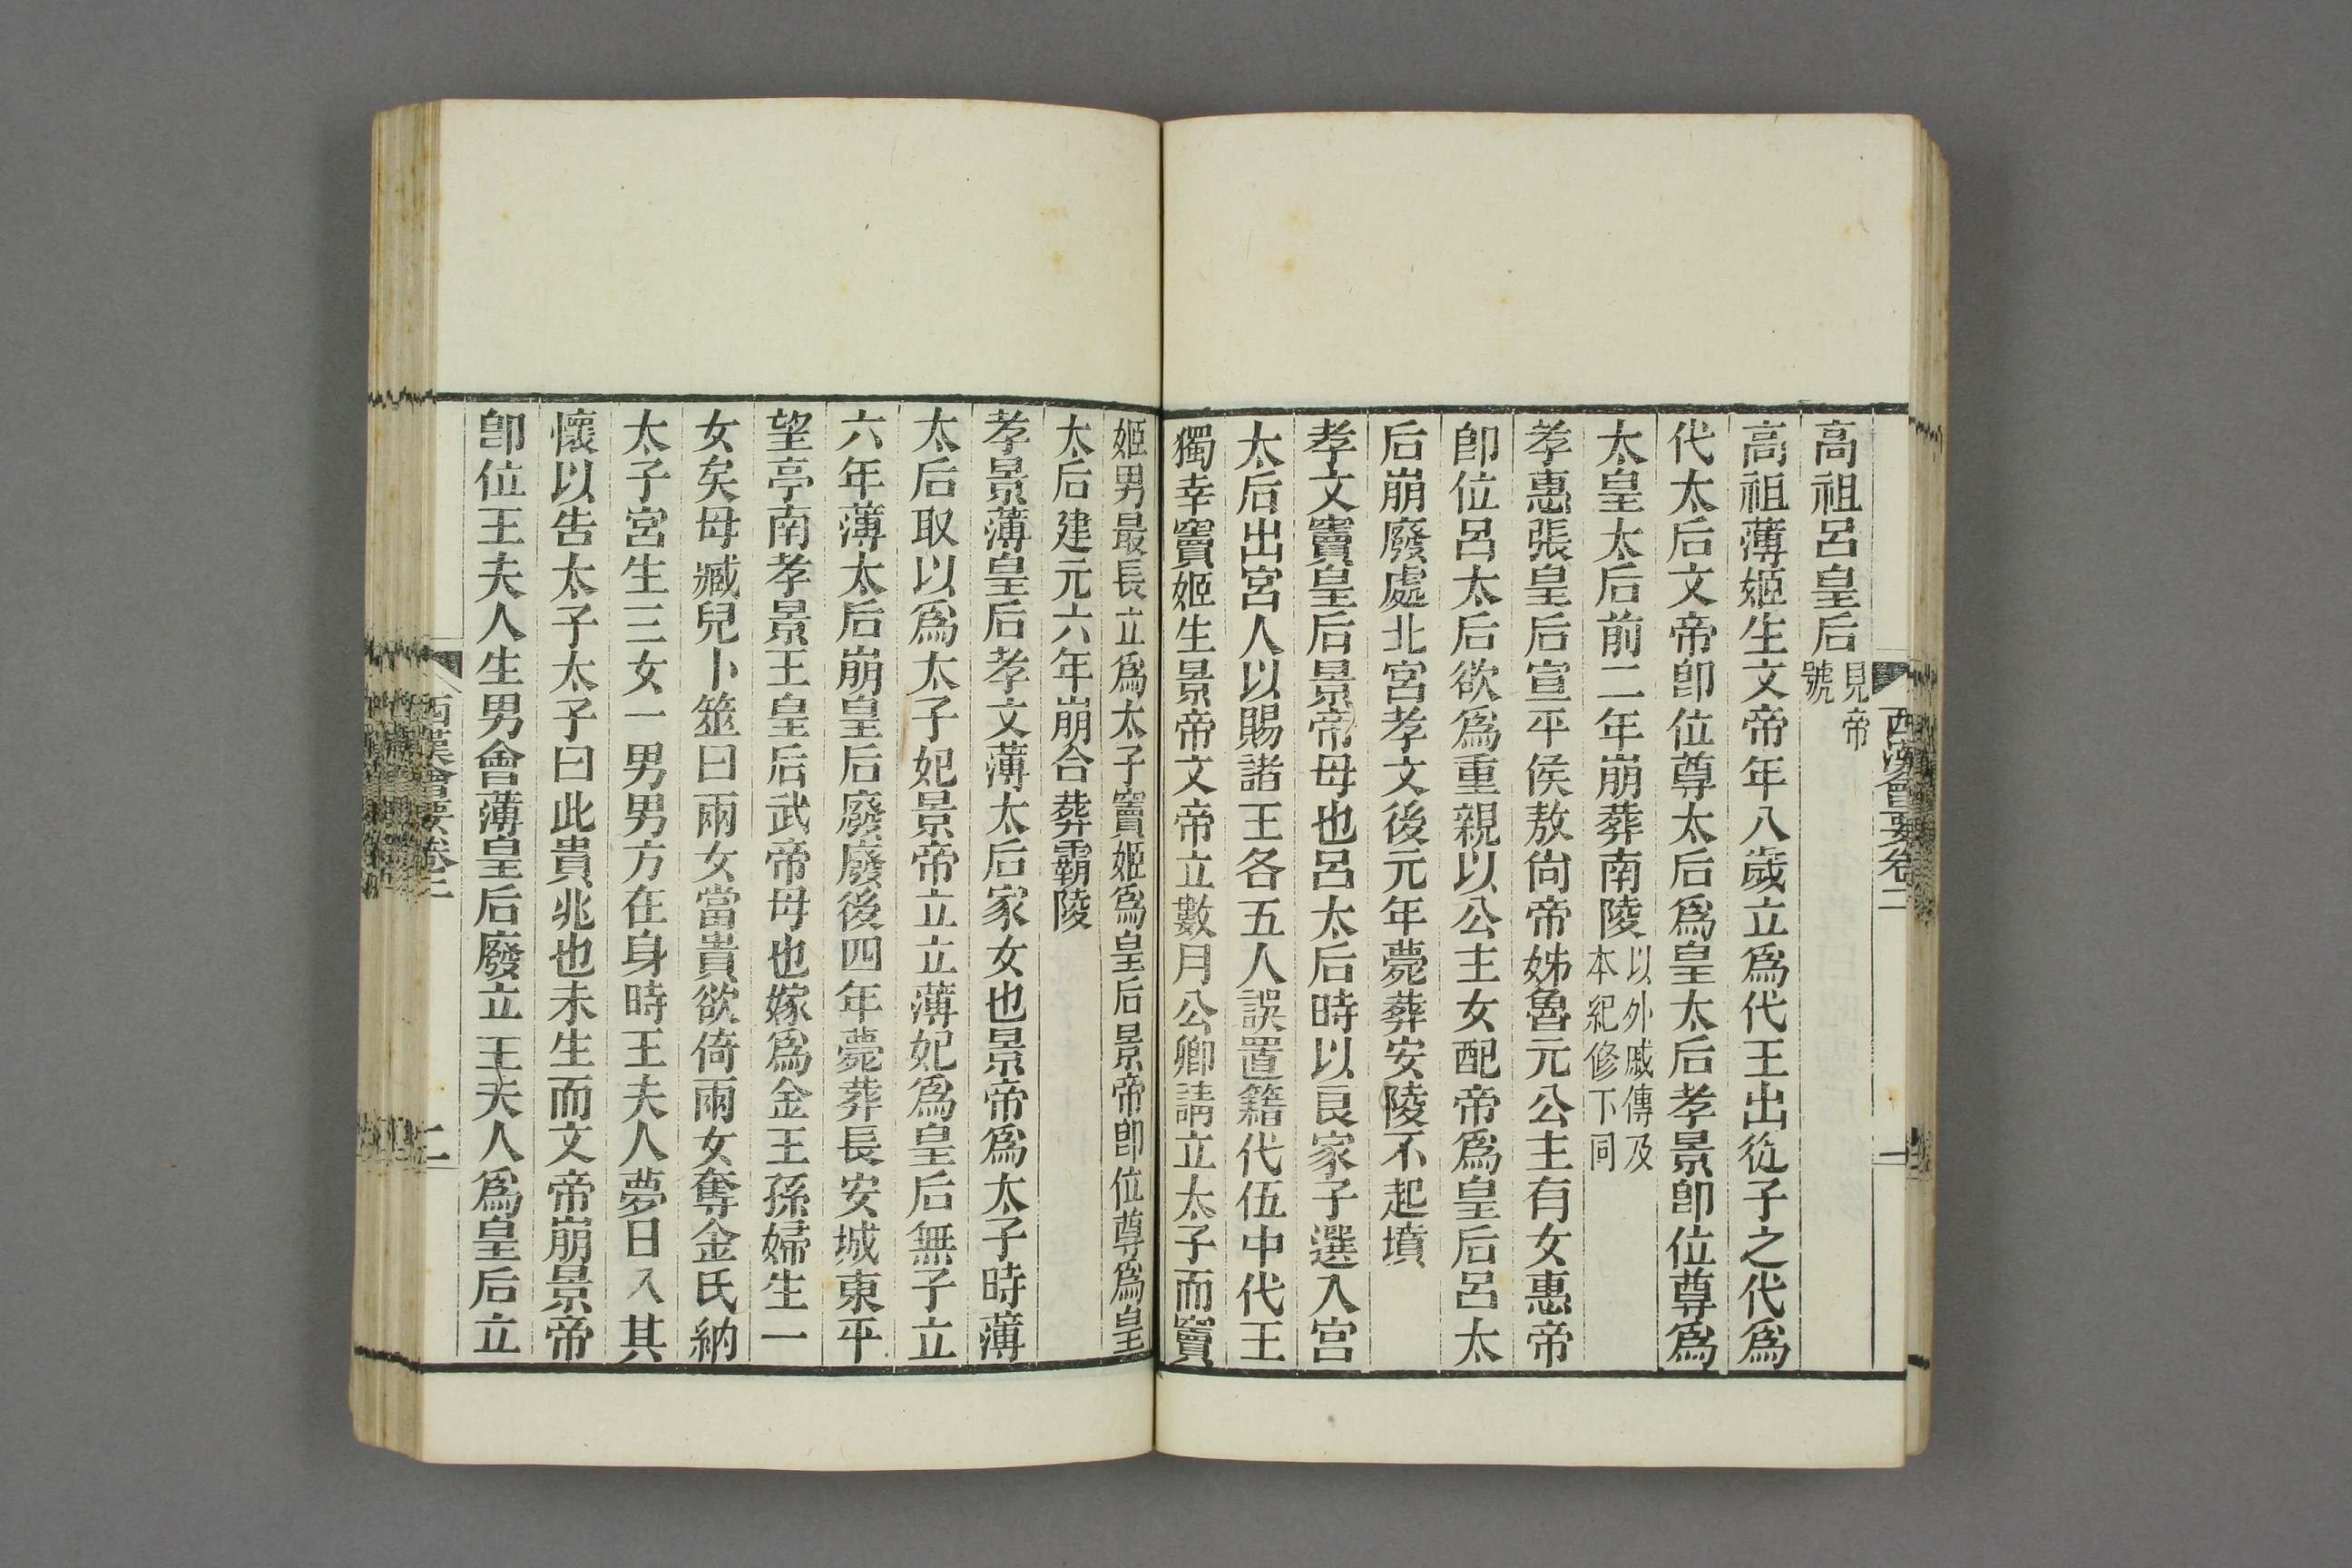 西漢會要卷二
一
高祖呂皇后見帝號
高祖薄姬生文帝年八歲立爲代王出從子之代爲
代太后文帝卽位尊太后爲皇太后孝景卽位尊爲
太皇太后前二年崩葬南陵以外戚傳及本紀修下同
孝惠張皇后宣平侯敖尙帝姊魯元公主有女惠帝
卽位呂太后欲爲重親以公主女配帝爲皇后呂太
后崩廢處北宮孝文後元年薨葬安陵不起墳
孝文竇皇后景帝母也呂太后時以良家子選入宮
太后出宮人以賜諸王各五人誤置籍代伍中代王
獨幸竇姬生景帝文帝立數月公卿請立太子而竇
姬男最長立爲太子竇姬爲皇后景帝卽位尊爲皇
太后建元六年崩合葬霸陵
孝景薄皇后孝文薄太后家女也景帝爲太子時薄
太后取以爲太子妃景帝立立薄妃爲皇后無子立
六年薄太后崩皇后廢廢後四年薨葬長安城東平
望亭南孝景王皇后武帝母也嫁爲金王孫婦生一
女矣母臧兒卜筮曰兩女當貴欲倚兩女奪金氏納
太子宮生三女一男男方在身時王夫人夢日入其
懷以告太子太子曰此貴兆也未生而文帝崩景帝
卽位王夫人生男會薄皇后廢立王夫人爲皇后立
西漢會要卷二
二